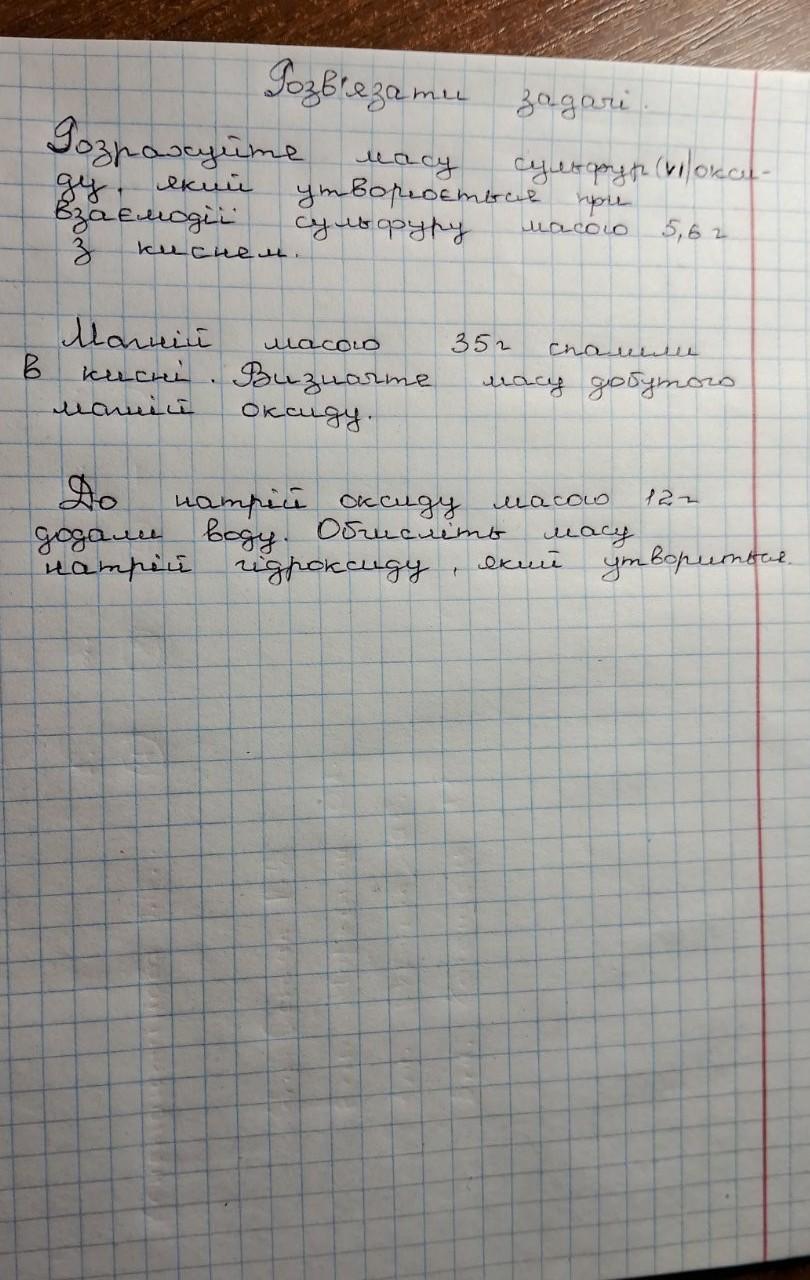 Розв'язати задачі.
Розрахуйте масу сульфур (VI) окси-
ду, який утворюється при
взаємодії сульфуру масою 5,6 г
з киснем.
Магній масою 35г спалили
в кисні. Визначте масу добутого
магній оксиду.
До натрій оксиду масою 12г
додали воду. Обчисліть масу
натрій гідроксиду, який утвориться.